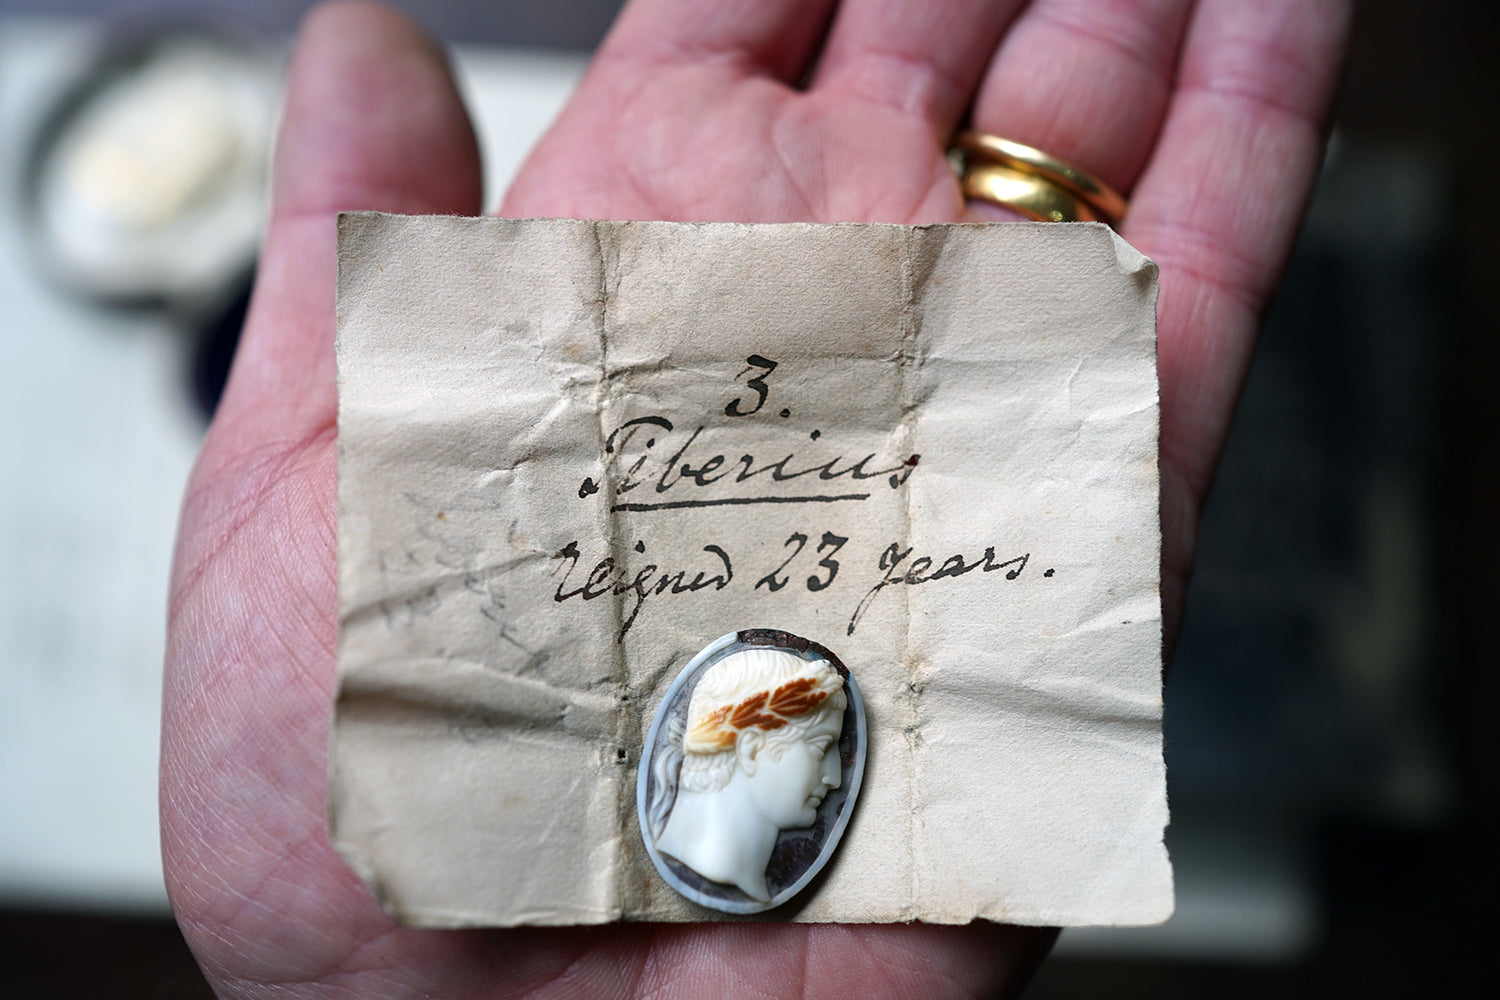 3.
Tiberius
reigned 23 years.